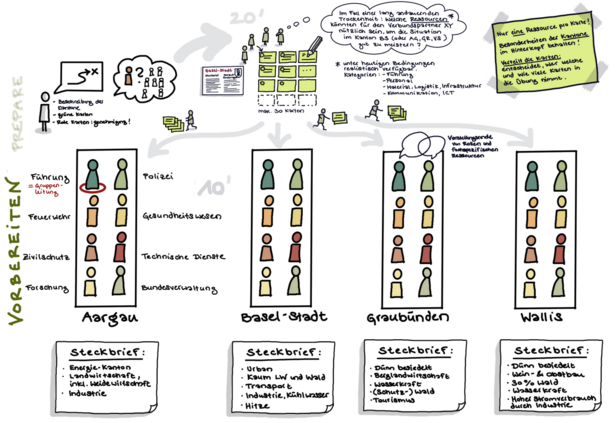 VORBEREITEN
PREPARE
20'
10'
- Beschreibung der
Elemente
- grüne Karten
- Rote Karten: genehmigung!
Basel-Stadt
max. 30 Karten
Im Fall einer lang andauernden
Trockenheit: Welche Ressourcen *
könnten für den Verbundpartner XY
nützlich sein, um die Situation
im Kanton BS (oder AG, GR, VS)
gut zu meistern?
* unter heutigen Bedingungen
realistisch verfügbar
Kategorien: - Führung
- Personal
- Material, Logistik, Infrastruktur
- Kommunikation, ICT
Nur eine Ressource pro Karte!
Besonderheiten der Kantone
im Hinterkopf behalten!
Verteilt die Karten:
entscheidet, wer welche
und wie viele Karten in
die Übung nimmt.
Vorstellungsrunde
von Rollen und
fachspezifischen
Ressourcen
Führung
= Gruppen-
leitung
Polizei
Feuerwehr
Gesundheitswesen
Zivilschutz
Technische Dienste
Forschung
Bundesverwaltung
Aargau
Basel-Stadt
Graubünden
Wallis
Steckbrief:
· Energie-Kanton
· Landwirtschaft,
inkl. Weidewirtschaft
· Industrie
Steckbrief:
· Urban
· Kaum LW und Wald
· Transport
· Industrie, Kühlwasser
· Hitze
Steckbrief:
· Dünn besiedelt
· Berglandwirtschaft
· Wasserkraft
· (Schutz-) Wald
· Tourismus
Steckbrief:
· Dünn besiedelt
· Wein- & Obstbau
· 30% Wald
· Wasserkraft
· Hoher Stromverbrauch
durch Industrie